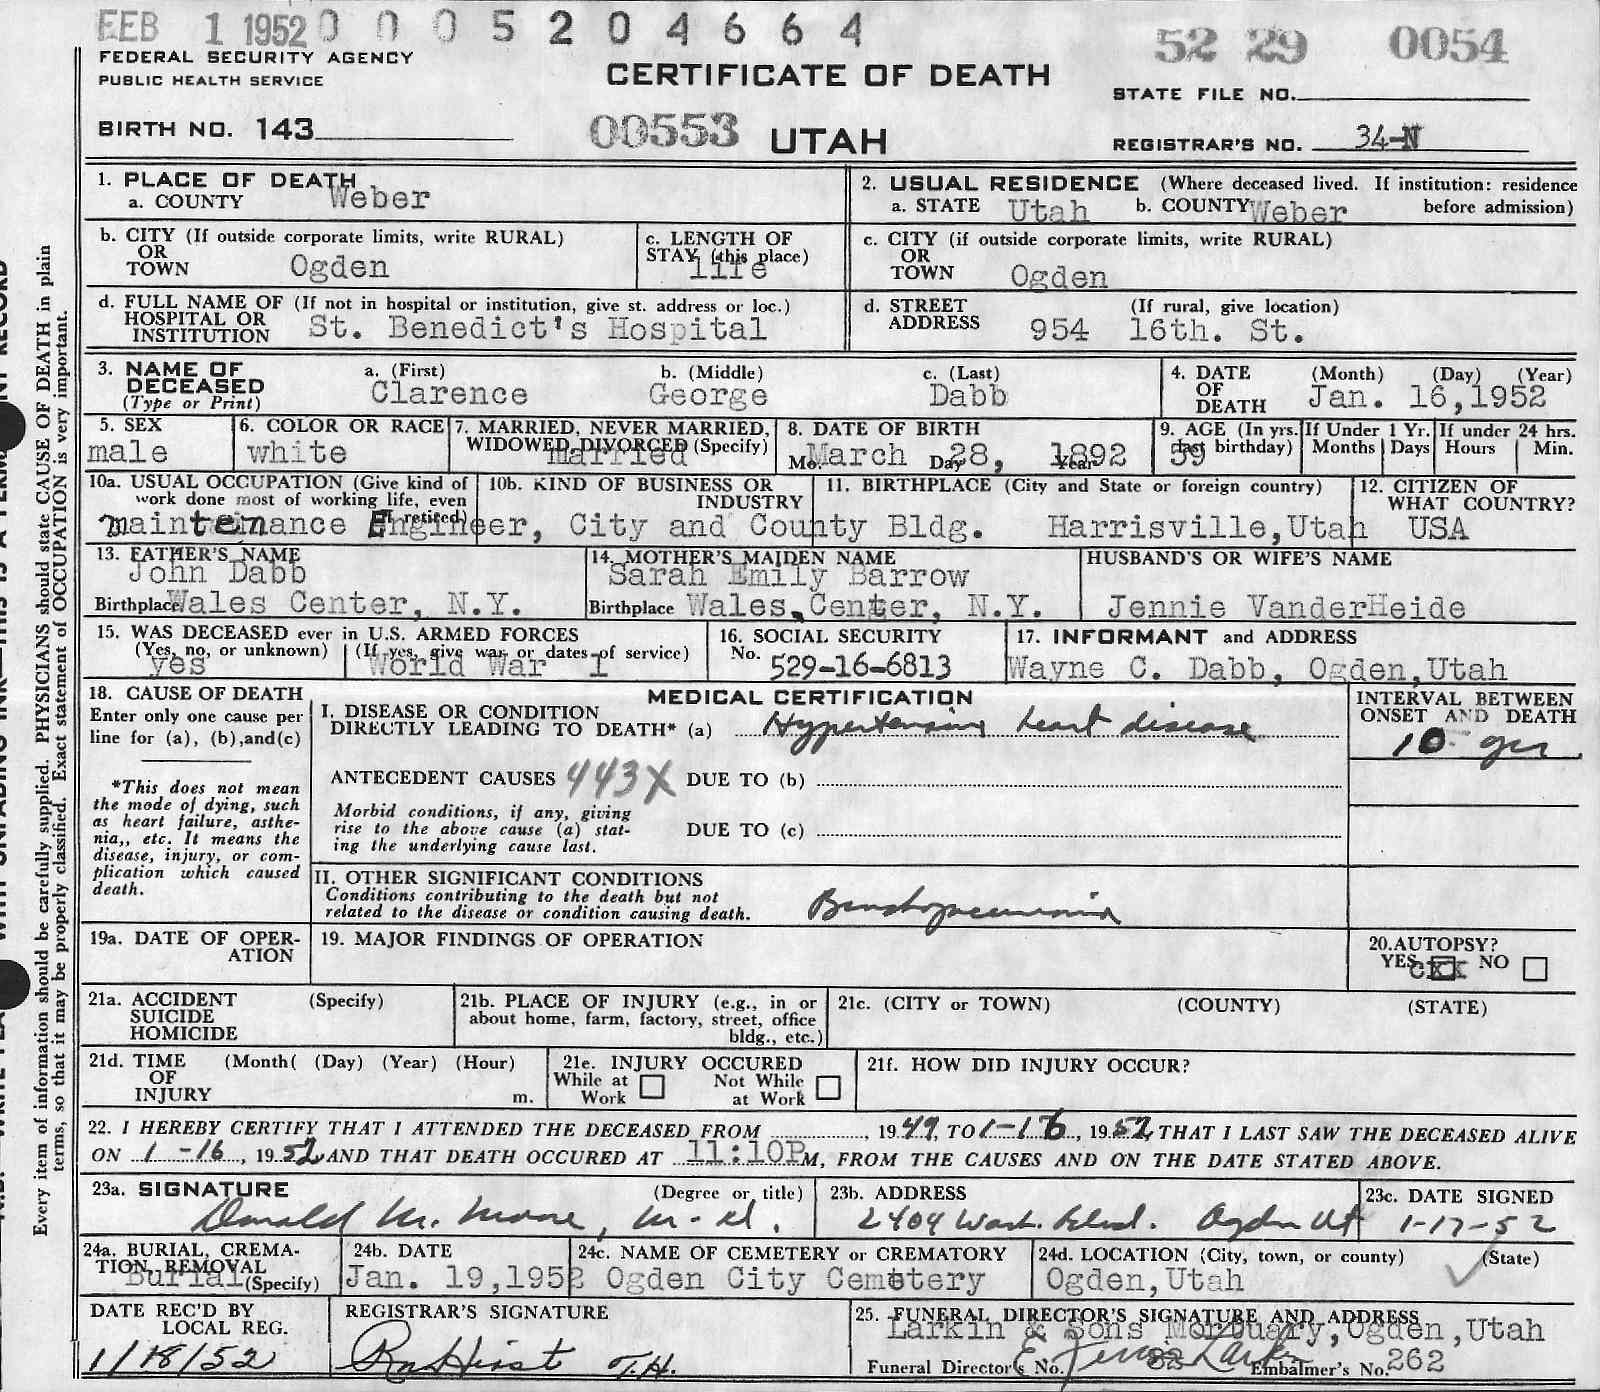 FEB 1 1952 0 0 0 5 2 0 4 6 6 4
52 29 0054
FEDERAL SECURITY AGENCY
PUBLIC HEALTH SERVICE
CERTIFICATE OF DEATH
STATE FILE NO.
BIRTH NO. 143
00553 UTAH
REGISTRAR'S NO. 34-N
1. PLACE OF DEATH
a. COUNTY Weber
2. USUAL RESIDENCE (Where deceased lived. If institution: residence before admission)
a. STATE Utah b. COUNTY Weber
b. CITY (If outside corporate limits, write RURAL)
OR
TOWN Ogden
c. LENGTH OF
STAY (this place)
life
c. CITY (if outside corporate limits, write RURAL)
OR
TOWN Ogden
d. FULL NAME OF (If not in hospital or institution, give st. address or loc.)
HOSPITAL OR
INSTITUTION St. Benedict's Hospital
d. STREET (If rural, give location)
ADDRESS 954 16th. St.
3. NAME OF
DECEASED
(Type or Print)
a. (First) b. (Middle) c. (Last)
Clarence George Dabb
4. DATE (Month) (Day) (Year)
OF
DEATH Jan. 16,1952
5. SEX
male
6. COLOR OR RACE
white
7. MARRIED, NEVER MARRIED,
WIDOWED, DIVORCED (Specify)
married
8. DATE OF BIRTH
Mo. March Day 28, Year 1892
9. AGE (In yrs. last birthday)
59
If Under 1 Yr.
Months Days
If under 24 hrs.
Hours Min.
10a. USUAL OCCUPATION (Give kind of
work done most of working life, even
if retired)
10b. KIND OF BUSINESS OR
INDUSTRY
11. BIRTHPLACE (City and State or foreign country)
12. CITIZEN OF
WHAT COUNTRY?
maintenance Engineer, City and County Bldg. Harrisville,Utah USA
13. FATHER'S NAME
John Dabb
Birthplace Wales Center, N.Y.
14. MOTHER'S MAIDEN NAME
Sarah Emily Barrow
Birthplace Wales Center, N.Y.
HUSBAND'S OR WIFE'S NAME
Jennie VanderHeide
15. WAS DECEASED ever in U.S. ARMED FORCES
(Yes, no, or unknown) (If yes, give war or dates of service)
yes World War I
16. SOCIAL SECURITY
No. 529-16-6813
17. INFORMANT and ADDRESS
Wayne C. Dabb, Ogden,Utah
18. CAUSE OF DEATH
Enter only one cause per
line for (a), (b),and(c)
*This does not mean
the mode of dying, such
as heart failure, asthe-
nia,, etc. It means the
disease, injury, or com-
plication which caused
death.
MEDICAL CERTIFICATION
I. DISEASE OR CONDITION
DIRECTLY LEADING TO DEATH* (a) Hypertensive heart disease
INTERVAL BETWEEN
ONSET AND DEATH
10 yrs
ANTECEDENT CAUSES 443X DUE TO (b)
Morbid conditions, if any, giving
rise to the above cause (a) stat-
ing the underlying cause last.
DUE TO (c)
II. OTHER SIGNIFICANT CONDITIONS
Conditions contributing to the death but not
related to the disease or condition causing death.
Bronchopneumonia
19a. DATE OF OPER-
ATION
19. MAJOR FINDINGS OF OPERATION
20.AUTOPSY?
YES NO
21a. ACCIDENT (Specify)
SUICIDE
HOMICIDE
21b. PLACE OF INJURY (e.g., in or
about home, farm, factory, street, office
bldg., etc.)
21c. (CITY or TOWN) (COUNTY) (STATE)
21d. TIME (Month( (Day) (Year) (Hour)
OF
INJURY m.
21e. INJURY OCCURED
While at Work Not While at Work
21f. HOW DID INJURY OCCUR?
22. I HEREBY CERTIFY THAT I ATTENDED THE DECEASED FROM , 1949, TO 1-16, 1952, THAT I LAST SAW THE DECEASED ALIVE
ON 1-16, 1952 AND THAT DEATH OCCURED AT 11:10P M, FROM THE CAUSES AND ON THE DATE STATED ABOVE.
23a. SIGNATURE (Degree or title)
Donald M. Moore, M.d.
23b. ADDRESS
2404 Wash. Blvd. Ogden Ut
23c. DATE SIGNED
1-17-52
24a. BURIAL, CREMA-
TION, REMOVAL
Burial (Specify)
24b. DATE
Jan. 19,1952
24c. NAME OF CEMETERY or CREMATORY
Ogden City Cemetery
24d. LOCATION (City, town, or county) (State)
Ogden,Utah
DATE REC'D BY
LOCAL REG.
1/18/52
REGISTRAR'S SIGNATURE
25. FUNERAL DIRECTOR'S SIGNATURE AND ADDRESS
Larkin & Sons Mortuary,Ogden,Utah
Funeral Director's No. 82 Embalmer's No. 262
Every item of information should be carefully supplied. PHYSICIANS should state CAUSE OF DEATH in plain
terms, so that it may be properly classified. Exact statement of OCCUPATION is very important.